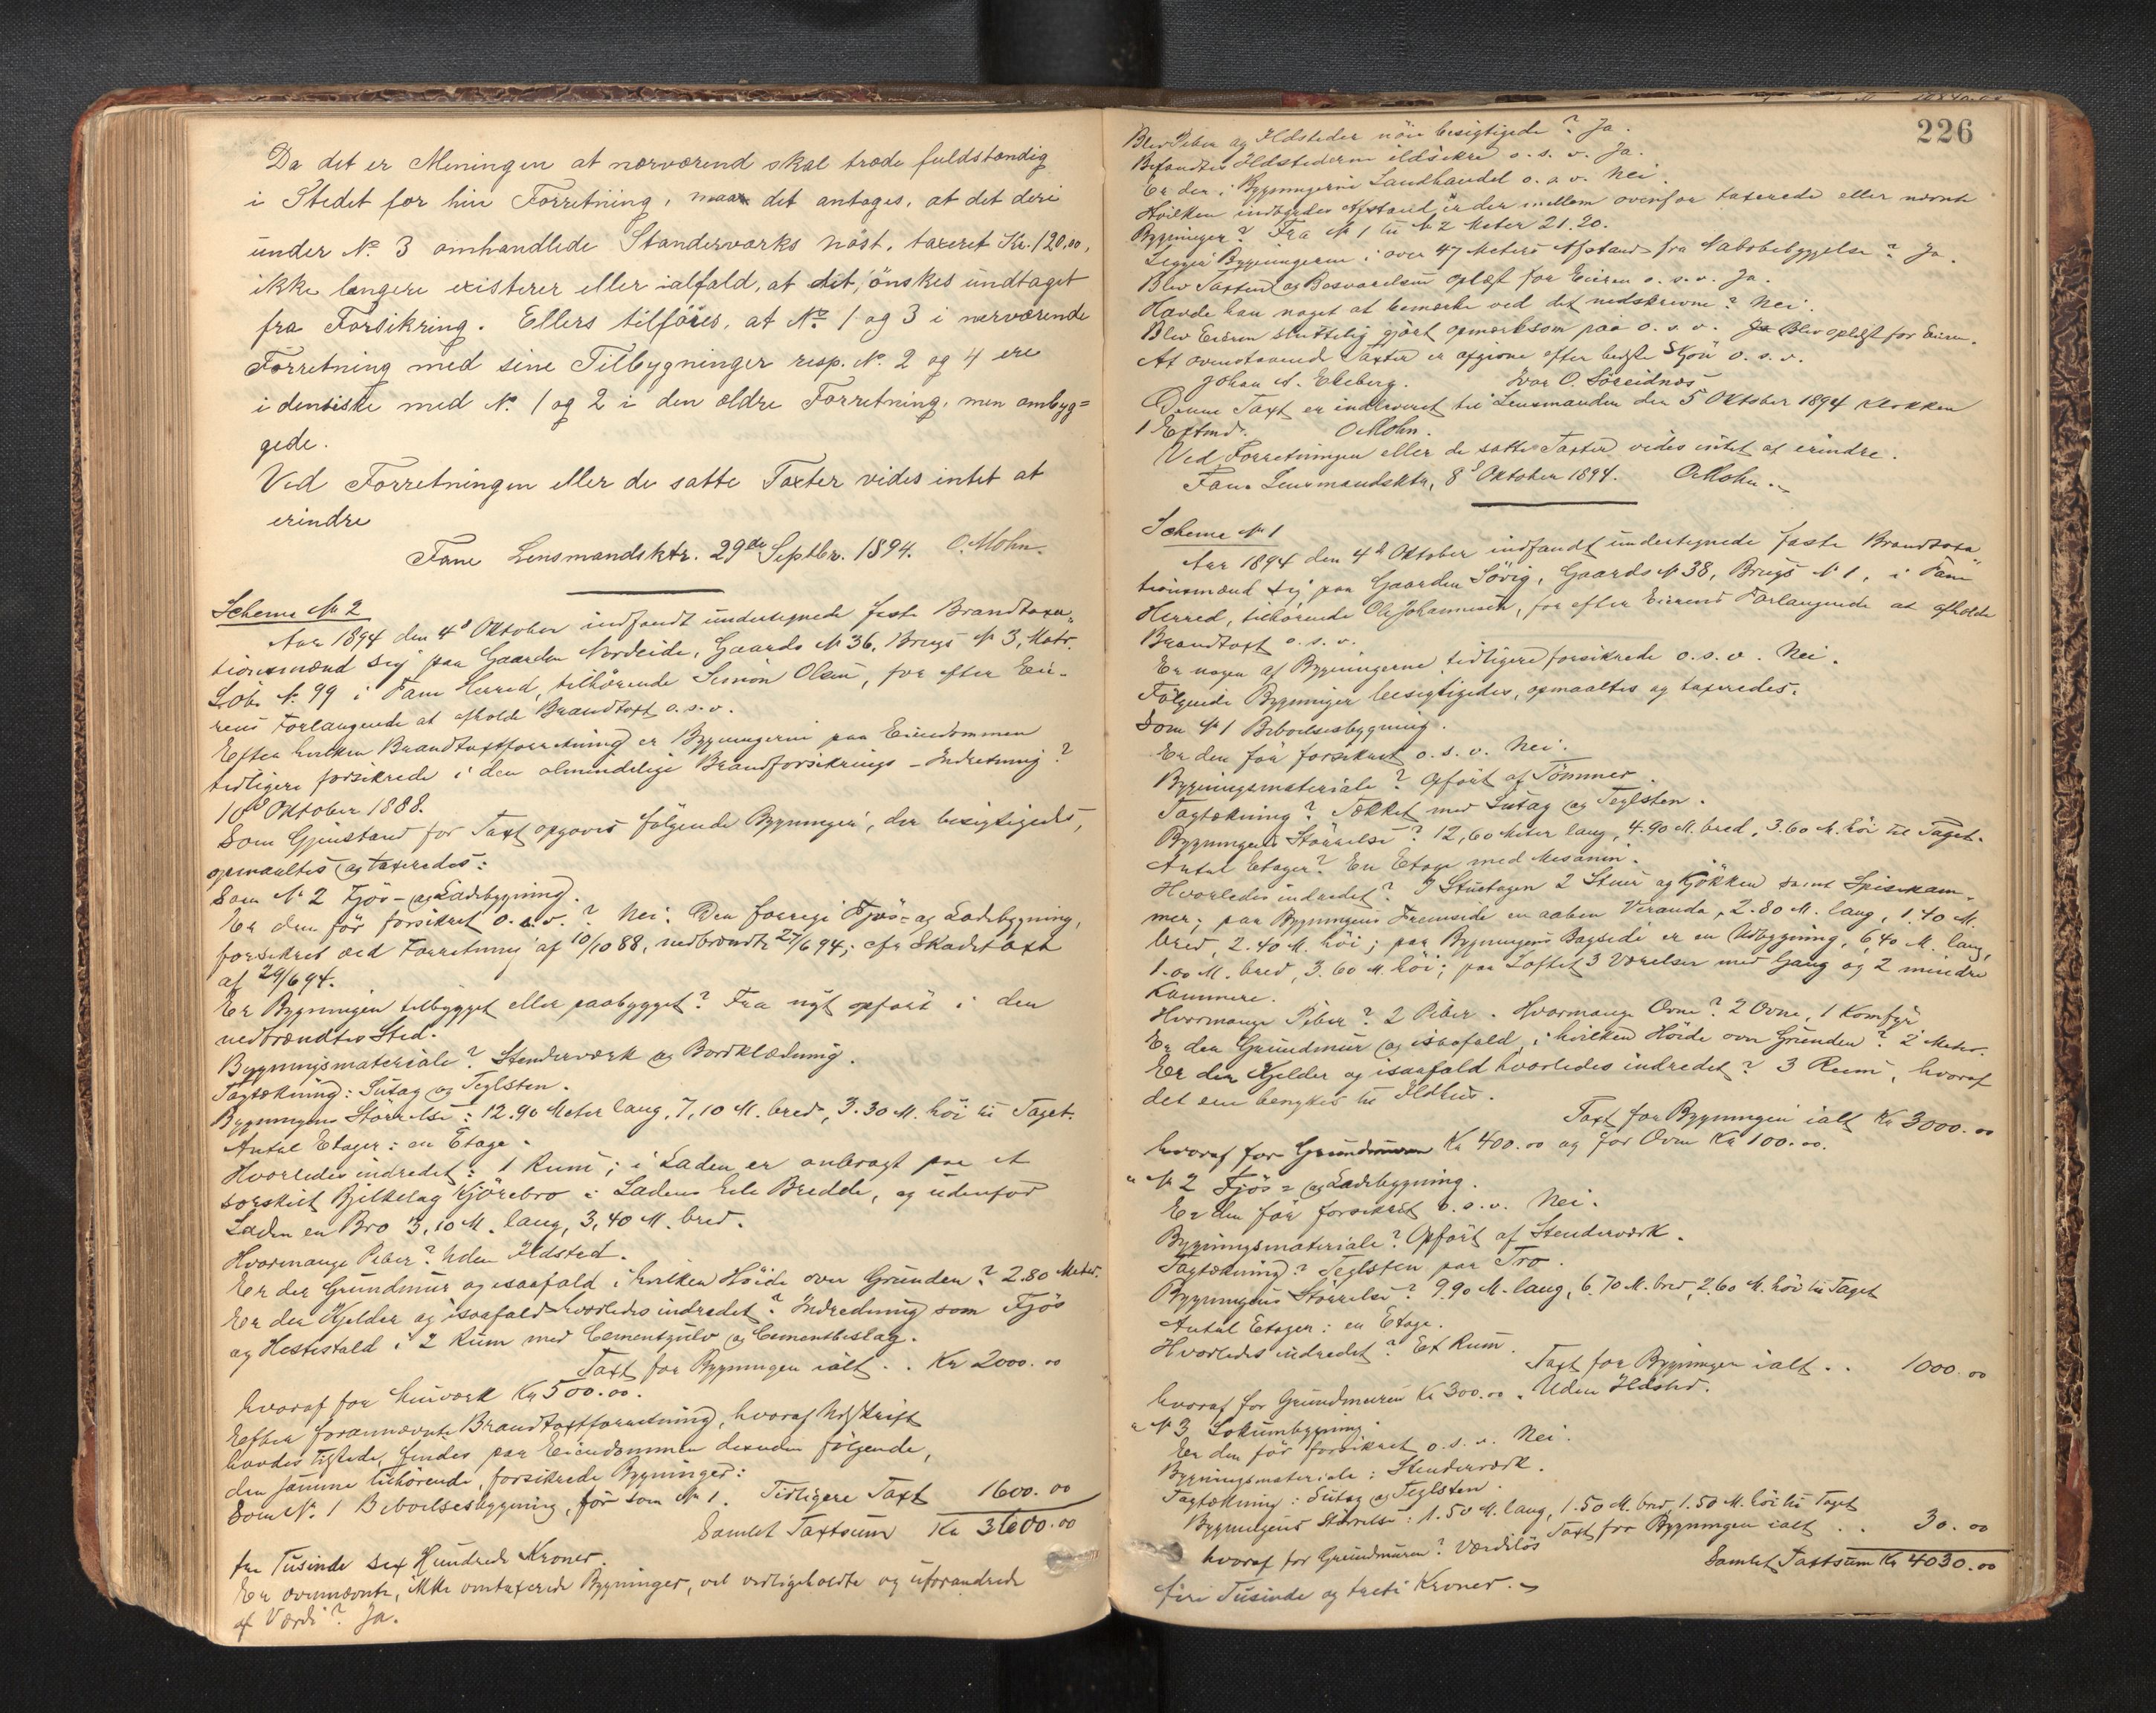 Da det er Meningen at nærværend skal træde fuldstændig
i Stedet for hin Forretning, maa det antages, at det deri
under No. 3 omhandlede Standerværks nøst, taxeret Kr. 120,00,
ikke længere existerer eller ialfald, at det ønskes undtaget
fra Forsikring. Ellers tilføies, at No. 1 og 3 i nærværende
Forretning med sine Tilbygninger resp. No. 2 og 4 ere
identiske med No. 1 og 2 i den ældre Forretning, men ombyg=
gede.
Ved Forretningen eller de satte Taxter vides intet at
erindre
Fane Lensmandsktr. 29de Septbr. 1894. O. Mohn.
Schema No 2
Aar 1894 den 4de Oktober indfandt undertegnede faste Brandtaxa„
tionsmænd sig paa Gaarden Nordeide, Gaards No 36, Brugs No 3, Matr.
Löb. No. 99 i Fane Herred, tilhørende Simon Olsen, for efter Eie-
rens Forlangende at afholde Brandtaxt o.s.v.
Efter hvilken Brandtaxtforretning er Bygningerne paa Eiendommen
tidligere forsikrede i den almindelige Brandforsikrings-Indretning?
10de Oktober 1888.
Som Gjenstand for Taxt opgaves følgende Bygninger, der besigtigedes,
opmaaltes og taxeredes:
Som No 2 Fjøs- og Ladebygning.
Er den før forsikret o.s.v.? Nei. Den forrige Fjøs- og Ladebygning,
forsikret ved Forretning af 10/10 88, nedbrændte 27/6 94; cfr Skadetaxt
af 29/6 94.
Er Bygningen tilbygget eller paabygget? Fra nyt opført i den
nedbrændtes Sted.
Bygningsmateriale? Stenderværk og Bordklædning.
Tagtækning: Sutag og Teglsten.
Bygningens Størrelse: 12.90 Meter lang, 7,10 M. bred, 3.30 M. høi til Taget.
Antal Etager: en Etage.
Hvorledes indredet: 1 Rum; i Laden er anbragt paa et
særskilt Bjelkelag Kjørebro i Ladens hele Bredde, og udenfor
Laden en Bro 3,10 M. lang, 3,40 M. bred.
Hvormange Piber? Uden Ildsted.
Er der Grundmur og isaafald i hvilken Høide over Grunden? 2.80 Meter.
Er der Kjelder og isaafald hvorledes indredet? Indredning som Fjøs
og Hestestald i 2 Rum med Cementgulv og Cementbeslag.
Taxt for Bygningen ialt . . Kr 2000.00
hvoraf for Murværk Kr 500.00.
Efter forannævnte Brandtaxtforretning, hvoraf Udskrift
havdes tilstede, findes paa Eiendommen desuden følgende,
den samme tilhørende, forsikrede Bygninger:
Som No. 1 Beboelsesbygning, før som No 1. Tidligere Taxt 1600.00
Samlet Taxtsum Kr 3600.00
tre Tusinde sex Hundrede Kroner.
Er ovennævnte, ikke omtaxerede Bygninger, vel vedligeholdte og uforandrede
af Værdi? Ja.
226
Blev Piber og Ildsteder nöie besigtigede? Ja.
Befandtes Ildstederne ildsikre o.s.v. Ja.
Er der i Bygningerne Landhandel o.s.v. Nei.
Hvilken indbyrdes Afstand er der mellem ovenfor taxerede eller nævnte
Bygninger? Fra No 1 til No 2 Meter 21.20.
Ligger Bygningerne i over 47 Meters Afstand fra Nabobebyggelse? Ja.
Blev Taxten og Besvarelsen oplæst for Eieren o.s.v. Ja.
Havde han noget at bemærke ved det nedskrevne? Nei.
Blev Eieren skriftelig gjort opmærksom paa o.s.v. Ja Blev oplæst for Eieren.
At ovenstaaende Taxter er afgivne efter bedste Skjøn o.s.v.
Johan A. Ekeberg. Ivar O. Söreidnæs
Denne Taxt er indleveret til Lensmanden den 5 Oktober 1894 Klokken
1 Eftmd. O Mohn.
Ved Forretningen eller de satte Taxter vides intet at erindre.
Fane Lensmandsktr, 8de Oktober 1894. O Mohn.
Schema No 1
Aar 1894 den 4de Oktober indfandt undertegnede faste Brandtaxa„
tionsmænd sig paa Gaarden Søvig, Gaards No 38, Brugs No 1, i Fane
Herred, tilhørende Ole Johannesen, for efter Eierens Forlangende at afholde
Brandtaxt o.s.v.
Er nogen af Bygningerne tidligere forsikrede o.s.v. Nei.
Følgende Bygninger besigtigedes, opmaaltes og taxeredes.
Som No 1 Beboelsesbygning.
Er den før forsikret o.s.v. Nei.
Bygningsmateriale? Opført af Tømmer.
Tagtækning? Tækket med Sutag og Teglsten.
Bygningens Størrelse? 12,60 Meter lang, 4.90 M. bred, 3.60 M. høi til Taget.
Antal Etager? En Etage med Mesanin.
Hvorledes indredet? I Stuetagen 2 Stuer og Kjøkken samt Spisekam-
mer; paa Bygningens Fremside en aaben Veranda, 2.80 M. lang, 1.40 M.
bred, 2.40 M. høi; paa Bygningens Bagside er en Udbygning, 6,40 M. lang,
1.00 M. bred, 3.60 M. høi; paa Loftet 3 Værelser med Gang og 2 mindre
Kammere.
Hvormange Piber? 2 Piber. Hvormange Ovne? 2 Ovne, 1 Komfyr
Er der Grundmur og isaafald i hvilken Höide over Grunden? 2 Meter.
Er der Kjelder og isaafald hvorledes indredet? 3 Rum, hvoraf
det ene benyttes til Ildhus.
Taxt for Bygningen ialt Kr 3000.00
hvoraf for Grundmuren Kr 400.00 og for Ovne Kr 100.00.
" No 2 Fjøs= og Ladebygning.
Er den før forsikret o.s.v. Nei.
Bygningsmateriale? Opført af Stenderværk.
Tagtækning? Teglsten paa Tro.
Bygningens Størrelse? 9.90 M. lang, 6.70 M. bred, 2.60 M. høi til Taget
Antal Etager: en Etage.
Hvorledes indredet? Et Rum.
Taxt for Bygningen ialt . . 1000.00
hvoraf for Grundmuren Kr 300.00. Uden Ildsted.
" No 3 Lokumbygning.
Er den før forsikret o.s.v. Nei.
Bygningsmateriale: Stenderværk.
Tagtækning: Sutag og Teglsten.
Bygningens Størrelse: 1.50 M. lang, 1.50 M. bred, 1.50 M. høi til Taget
Taxt for Bygningen ialt . . 30.00
hvoraf for Grundmuren? Værdiløs
Samlet Taxtsum Kr 4030.00
fire Tusinde og treti Kroner.